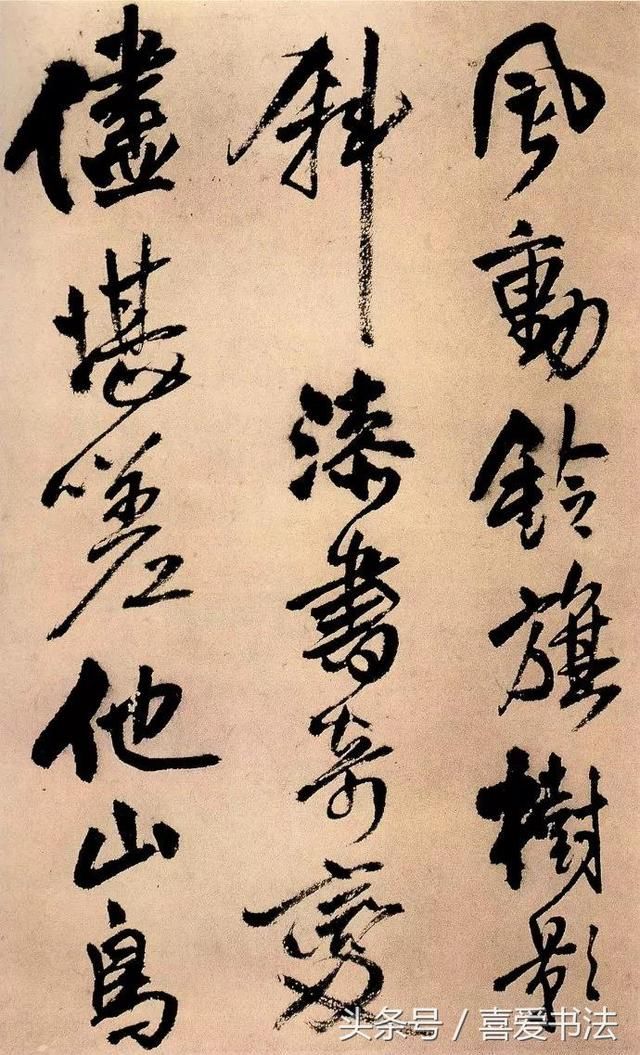 風動鈴旗樹影
斜漆書奇
儘堪嗟他山鳥
头条号/喜爱书法